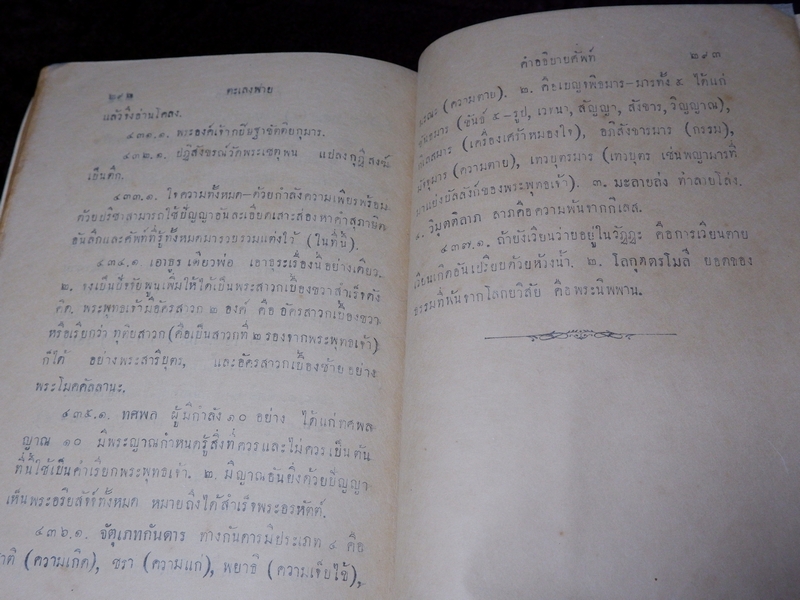 ๒๙๒ ตะเลงพ่าย
แล้วจึงอ่านโคลง.
๔๓๑.๑. พระองค์เจ้ากปิษฐาขัตติยกุมาร.
๔๓๒.๑. ปฏิสังขรณ์วัดพระเชตุพน แปลงกุฎีสงฆ์
เป็นตึก.
๔๓๓.๑. ใจความทั้งหมด—ด้วยกำลังความเพียรพร้อม
ด้วยปรีชาสามารถใช้ปัญญาอันละเอียดเสาะส่องหาคำสุภาษิต
อันลึกและศัพท์ที่รู้ทั้งหมดมารวบรวมแต่งไว้ (ในที่นี้).
๔๓๔.๑ เอาธุร เดียวพ่อ เอาธุระเรื่องนี้อย่างเดียว.
๒. จงเป็นปัจจัยพูนเพิ่มให้ได้เป็นพระสาวกเบื้องขวาสำเร็จดัง
คิด. พระพุทธเจ้ามีอัครสาวก ๒ องค์ คือ อัครสาวกเบื้องขวา
หรือเรียกว่า ทุติยสาวก (คือเป็นสาวกที่ ๒ รองจากพระพุทธเจ้า)
ก็ได้ อย่างพระสารีบุตร, และอัครสาวกเบื้องซ้าย อย่าง
พระโมคคัลลานะ.
๔๓๕.๑. ทศพล ผู้มีกำลัง ๑๐ อย่าง ได้แก่ทศพล
ญาณ ๑๐ มีพระญาณกำหนดรู้สิ่งที่ควรและไม่ควร เป็นต้น
ที่นี้ใช้เป็นคำเรียกพระพุทธเจ้า. ๒. มีญาณอันยิ่งด้วยปัญญา
เห็นพระอริยสัจจ์ทั้งหมด หมายถึงได้สำเร็จพระอรหัตต์.
๔๓๖.๑. จัตุเภทกันดาร ทางกันดารมีประเภท ๔ คือ
ชาติ (ความเกิด), ชรา (ความแก่), พยาธิ (ความเจ็บไข้),
คำอธิบายศัพท์ ๒๙๓
มรณะ (ความตาย). ๒. คือเบญจพิธมาร-มารทั้ง ๕ ได้แก่
ขันธมาร (ขันธ์ ๕-รูป, เวทนา, สัญญา, สังขาร, วิญญาณ),
กิเลสมาร (เครื่องเศร้าหมองใจ), อภิสังขารมาร (กรรม),
มัจจุมาร (ความตาย), เทวบุตรมาร (เทวบุตร เช่นพญามารที่
มาแย่งบัลลังก์ของพระพุทธเจ้า). ๓. มะลายล่ง ทำลายโล่ง.
๔. วิมุตติลาภ ลาภคือความพ้นจากกิเลส.
๔๓๗.๑. ถ้ายังเวียนว่ายอยู่ในวัฏฏะ คือการเวียนตาย
เวียนเกิดอันเปรียบด้วยห้วงน้ำ. ๒. โลกุตตรโมลี ยอดของ
ธรรมที่พ้นจากโลกยวิสัย คือพระนิพพาน.